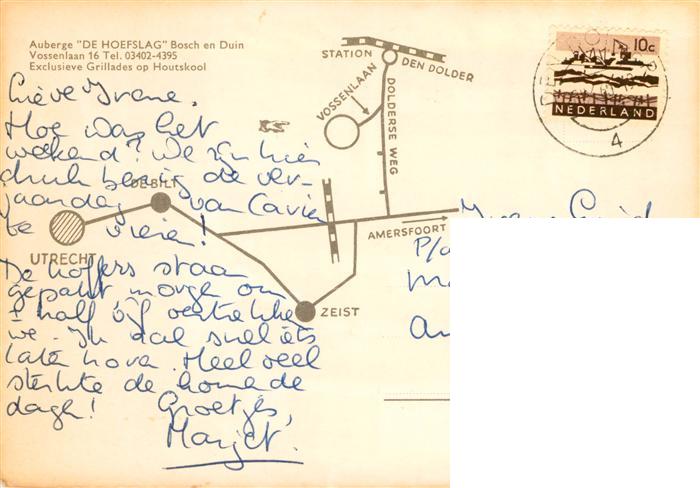 Auberge "DE HOEFSLAG" Bosch en Duin
Vossenlaan 16 Tel. 03402-4395
Exclusieve Grillades op Houtskool
Lieve Yvonne,
Hoe was het
weekend? We zijn hier
druk bezig de ver-
jaardag van Carien
te vieren!
De koffers staan
gepakt morgen om
± half vijf vertrekken
we. Ik zal snel iets
laten horen. Heel veel
sterkte de komende
dagen! Groetjes,
Marjet.
STATION
DEN DOLDER
VOSSENLAAN
DOLDERSE WEG
DE BILT
UTRECHT
AMERSFOORT
ZEIST
10c
NEDERLAND
4
P/a